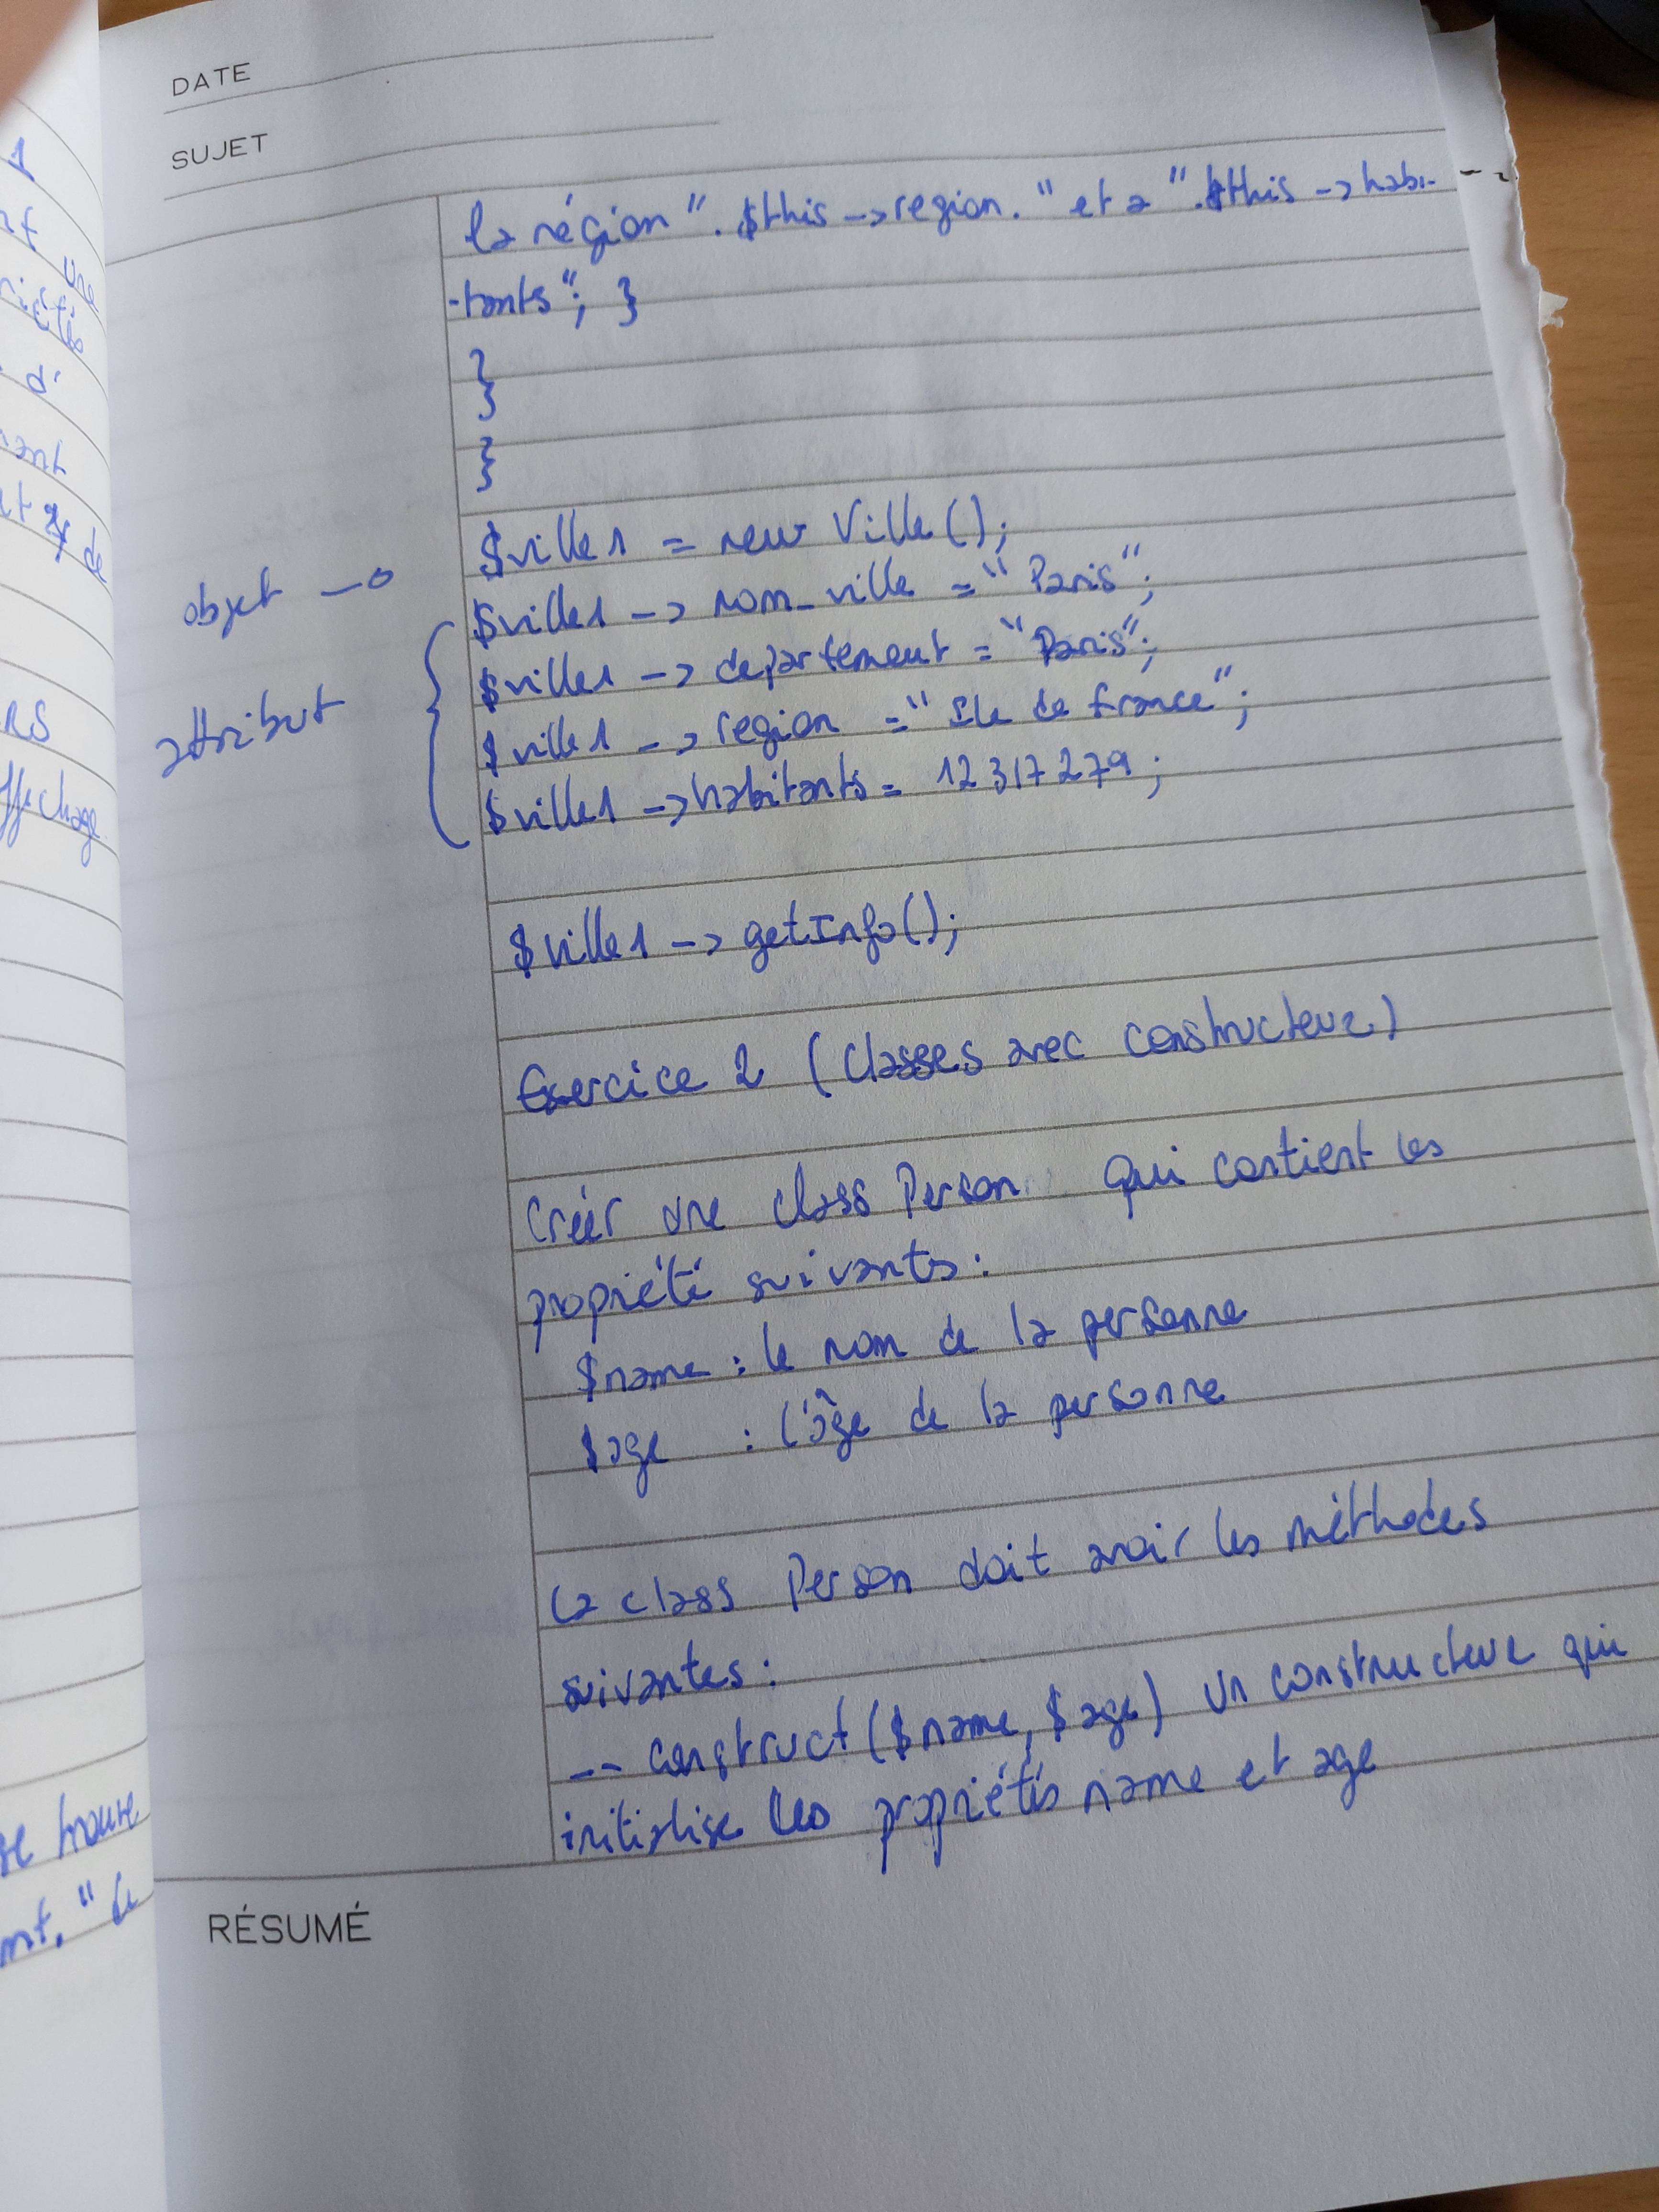 DATE
SUJET
la région ". $this -> region. " et a ". $this -> habi-
-tants"; }
}
}
$ville1 = new Ville();
objet
$ville1 -> nom_ville = "Paris";
$ville1 -> departement = "Paris";
attribut
$ville1 -> region = "Ile de france";
$ville1 -> habitants = 12317279;
$ville1 -> getInfo();
Exercice 2 (Classes avec constructeur)
Créer une class Person qui contient les
propriété suivants :
$name : le nom de la personne
$age : l'âge de la personne
La class Person doit avoir les méthodes
suivantes :
__ construct ($name, $age) un constructeur qui
initialise les propriétés name et age
RÉSUMÉ
une
d'
de
ffichage
se trouve